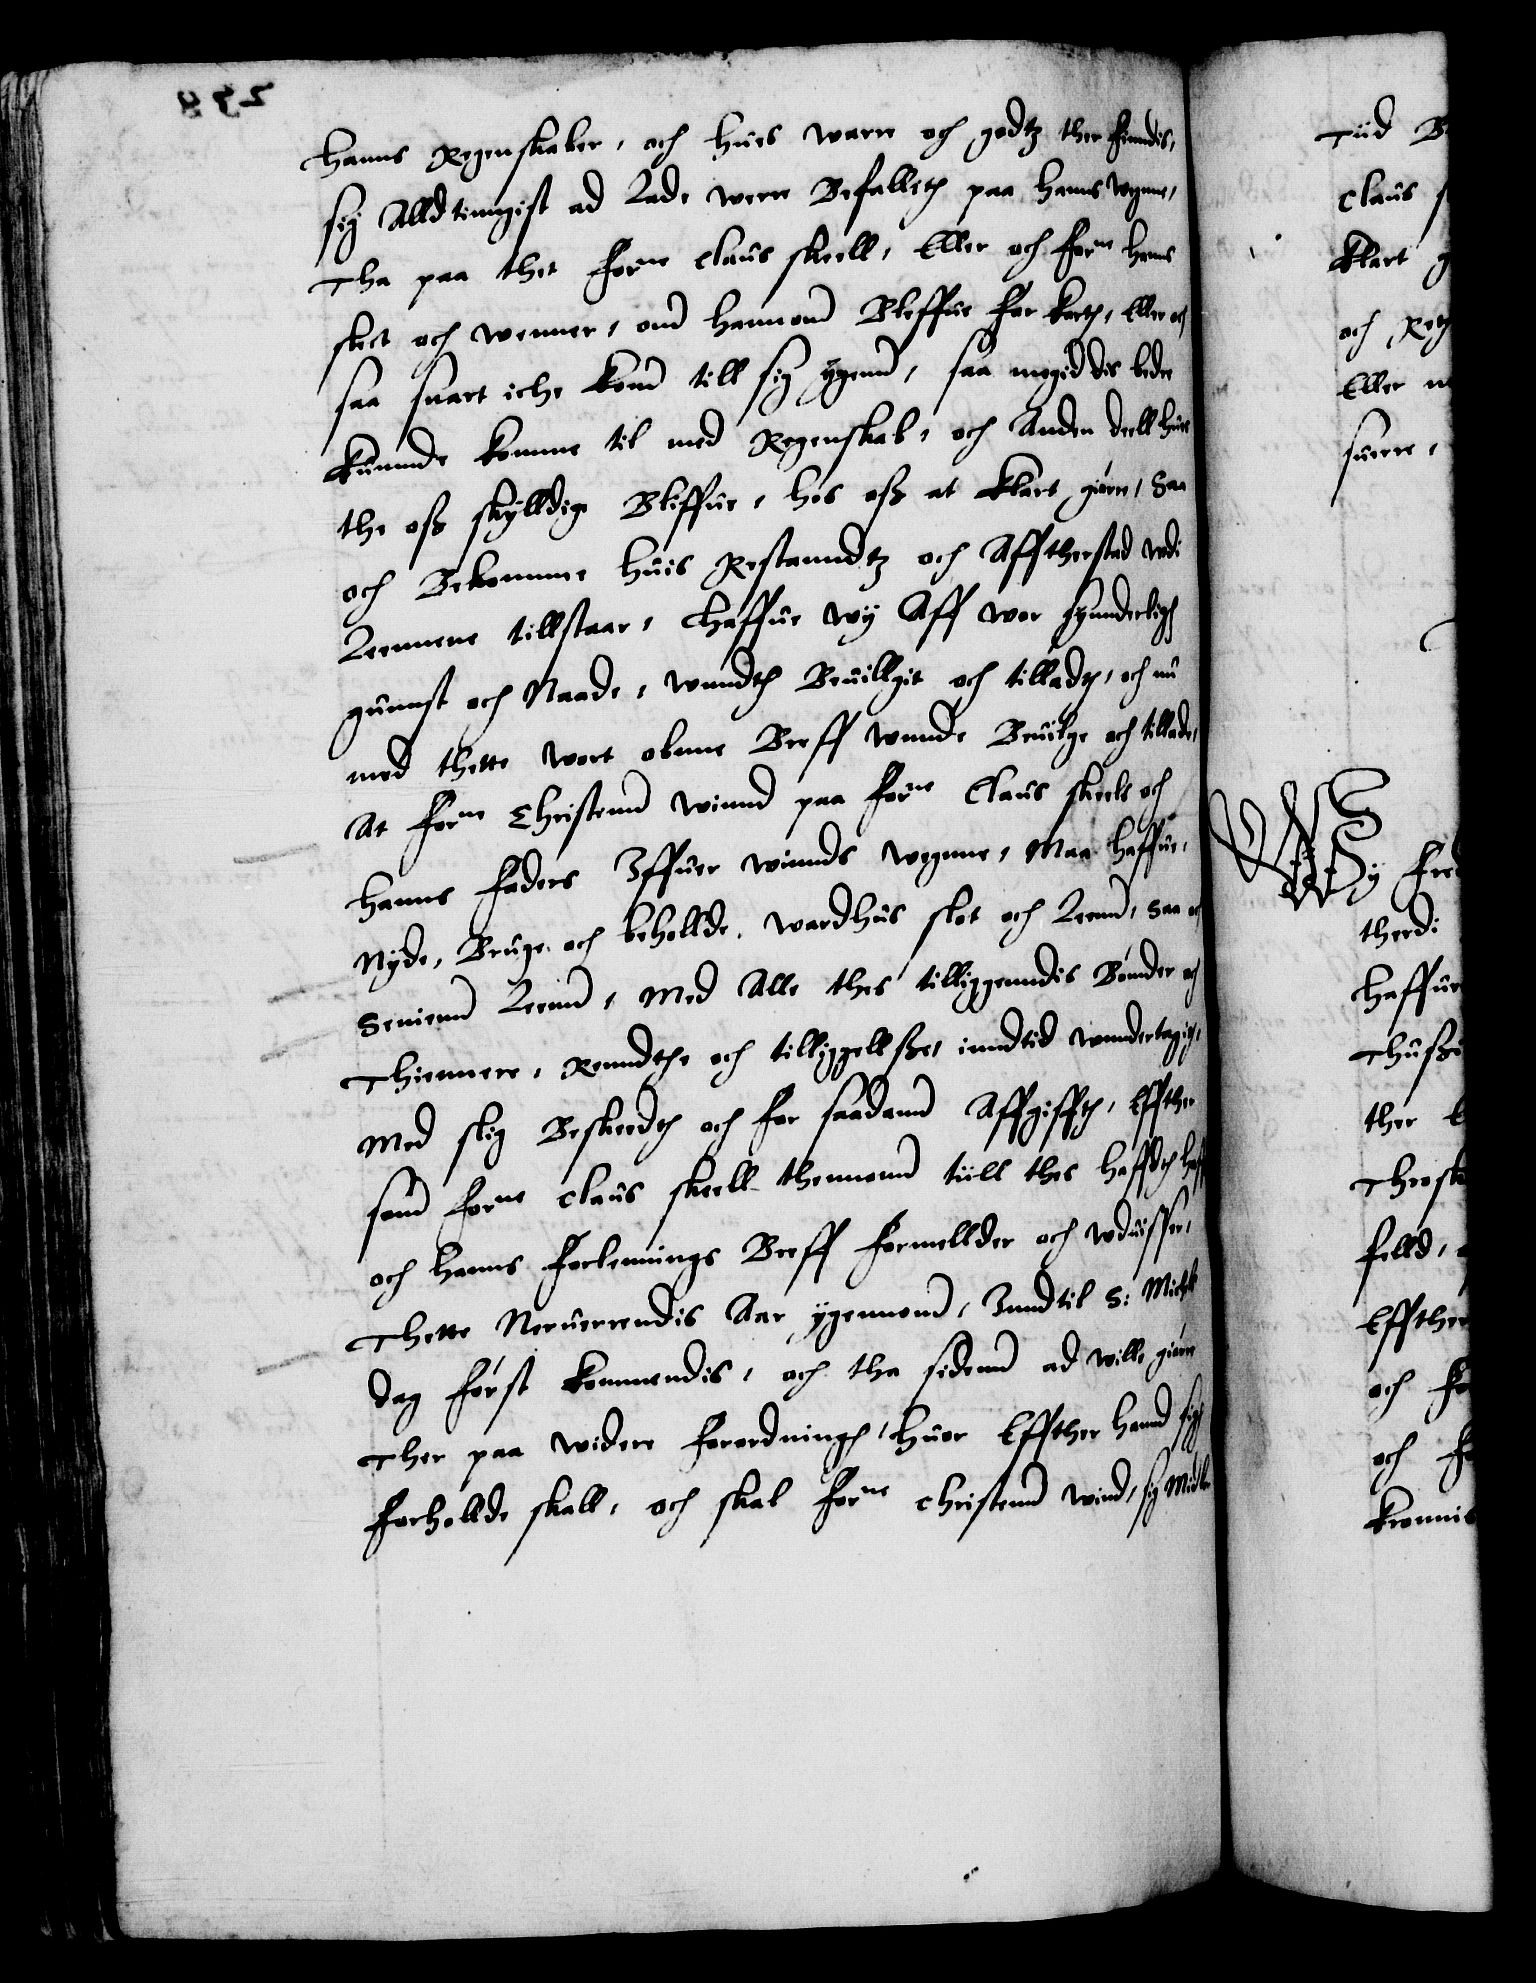 hanns Regenskaber, och hues warre och godtz ther findis,
sig Alldtingist ad Lade werre Befallith paa hanns wegnne,
Tha paa thet forne Claus skeell, Eller och forne hans
slect och wenner, om hannom Bleffue for korth, Eller och
saa snart iche kom till sig ygenn, saa megid dis bedre
kunnde komme til med Regenskab, och Anden deell hues
the oss skylldige Bliffue, hos oss at klart giøre, Saa
och Bekomme huis Restanndtz och Afftherstad vdi
Leennene tillstaar, Haffue wy Aff wor synnderligh
gunnst och Naade, wnndth Beuillgit och tilladth, och nu
med thette wort obnne Breff wnnde Beuilge och tillade,
At forne Christenn winnd paa forne Claus skeels och
hanns Faders Iffuer winnds wegnne, Maa haffue,
Nyde, Bruge och beholde, wardhus slot och Leenn, Saa och
Senienn Leenn, Med Alle thes tilliggenndis Bønder och
Thiennere, Renndthe och tilliggellsse, inndtid wnndertagith,
Med slig Beskeedth och for saadann Affgiffth, Effther
som forne Claus skeell thennom tiill thes haffdth haffr
och hanns Forlennings Breff formellder och wduisser,
Thette Neruerrendis Aar ygennom, Inndtil S: Michels
dag først kommendis, och tha sidenn ad wille giøre
Ther paa widere Forordningh, huor Effther hannd sigh
forhollde skall, och skal forne Christenn wind, sig Midler
Tiid
Claus
klart
och
Eller
suerre,
Wy
therdi
haffue
ther
felld,
Effther
och
och
kronnis